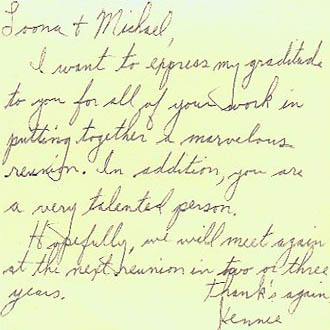 Loona & Michael,
I want to express my graditude
to you for all of your work in
putting together a marvelous
reunion. In addition, you are
a very talented person.
Hopefully, we will meet again
at the next reunion in two or three
years. Thank's again
Jennie